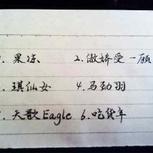 1. 果冻 2. 傲娇受一颗
3. 琪仙女 4. 马劲羽
5. 天歌Eagle 6. 吃货车